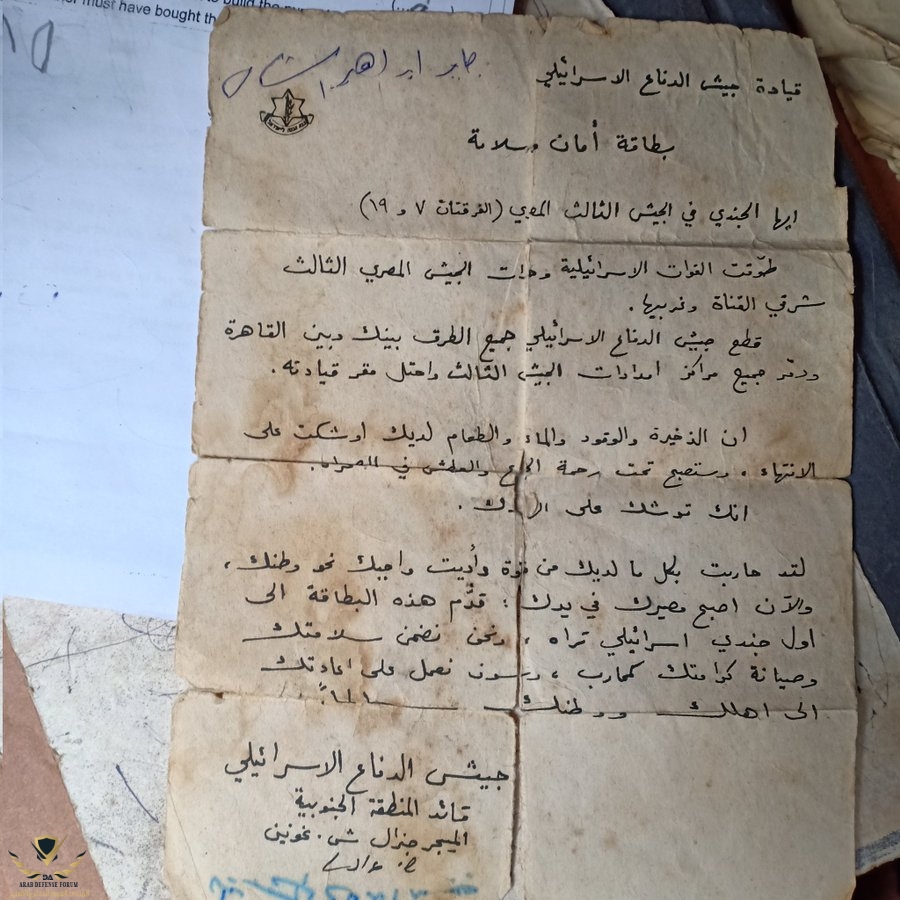 to build the
er must have bought th
جابر ابراهيم
قيادة جيش الدفاع الاسرائيلي
بطاقة أمان وسلامة
ايها الجندي في الجيش الثالث المصري (الفرقتان ٧ و ١٩)
طوّقت القوات الاسرائيلية وحدات الجيش المصري الثالث
شرقي القناة وغربيها .
قطع جيش الدفاع الاسرائيلي جميع الطرق بينك وبين القاهرة
ودمّر جميع مراكز امدادات الجيش الثالث واحتل مقر قيادته .
ان الذخيرة والوقود والماء والطعام لديك اوشكت على
الانتهاء ، وستصبح تحت رحمة الجوع والعطش في الصحراء .
انك توشك على الهلاك .
لقد حاربت بكل ما لديك من قوة وأديت واجبك نحو وطنك ،
والآن اصبح مصيرك في يدك : قدّم هذه البطاقة الى
اول جندي اسرائيلي تراه ، ونحن نضمن سلامتك
وصيانة كرامتك كمحارب ، وسوف نعمل على اعادتك
الى اهلك ووطنك سالماً .
جيش الدفاع الاسرائيلي
قائد المنطقة الجنوبية
الميجر جنرال ش . غونين
DA
ARAB DEFENSE FORUM